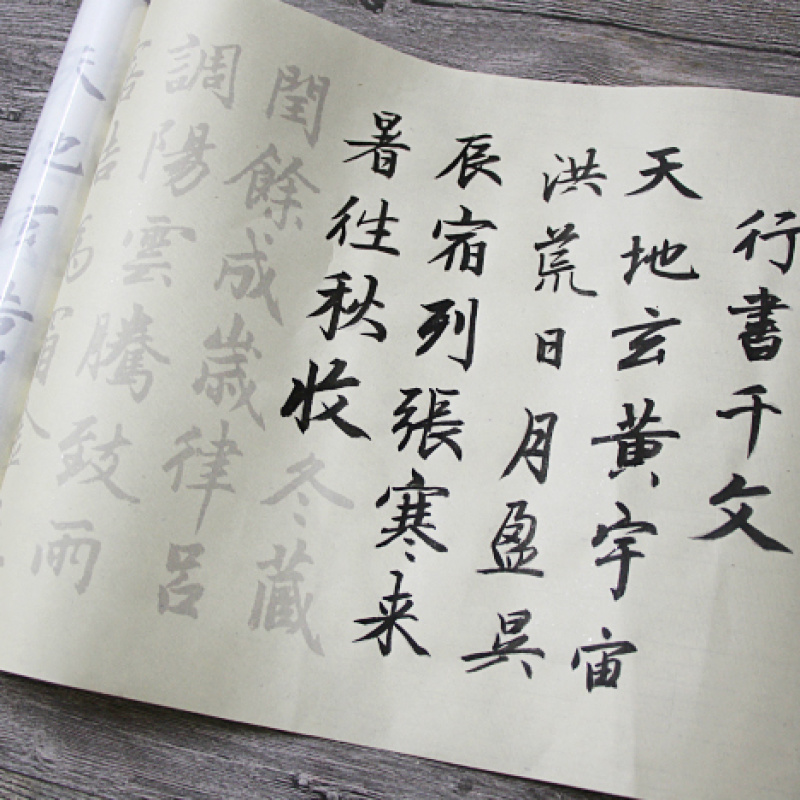 行書千文
天地玄黄宇宙
洪荒日月盈昃
辰宿列張寒来
暑往秋收冬藏
閏餘成歲律呂
調陽雲騰致雨